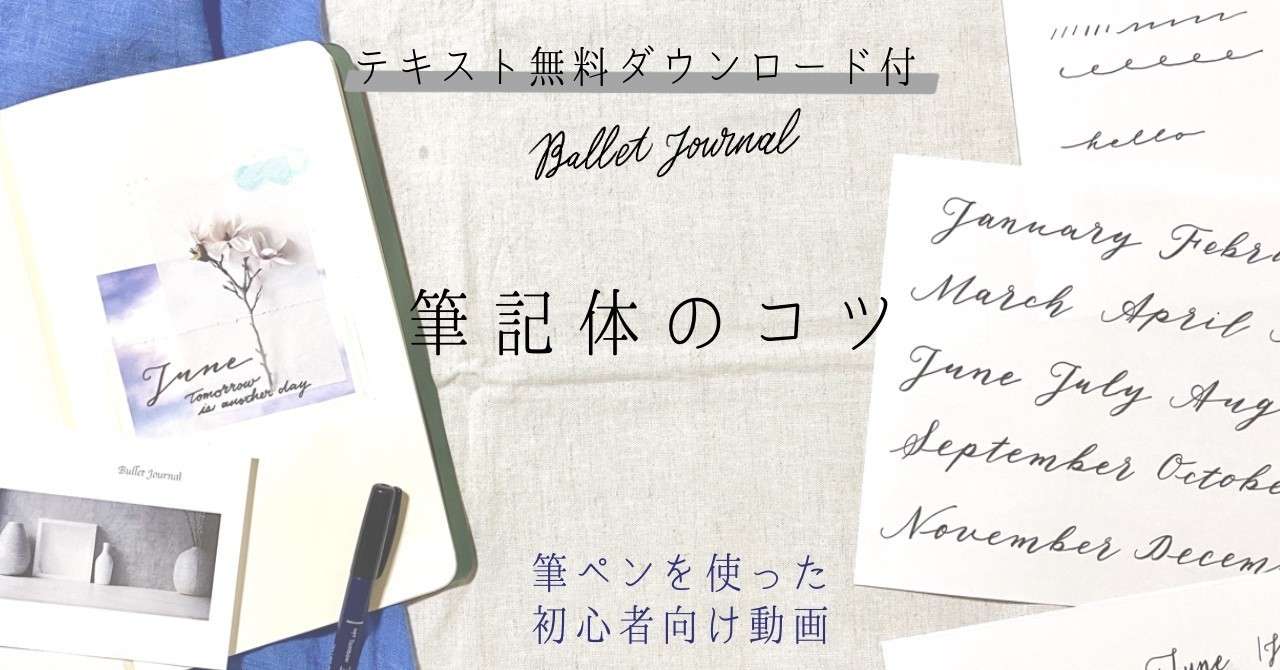 テキスト無料ダウンロード付
Ballet Journal
筆記体のコツ
筆ペンを使った
初心者向け動画
June
Tomorrow
is another day
Bullet Journal
hello
January Febr
March April
June July Aug
September Octobe
November Decem
June